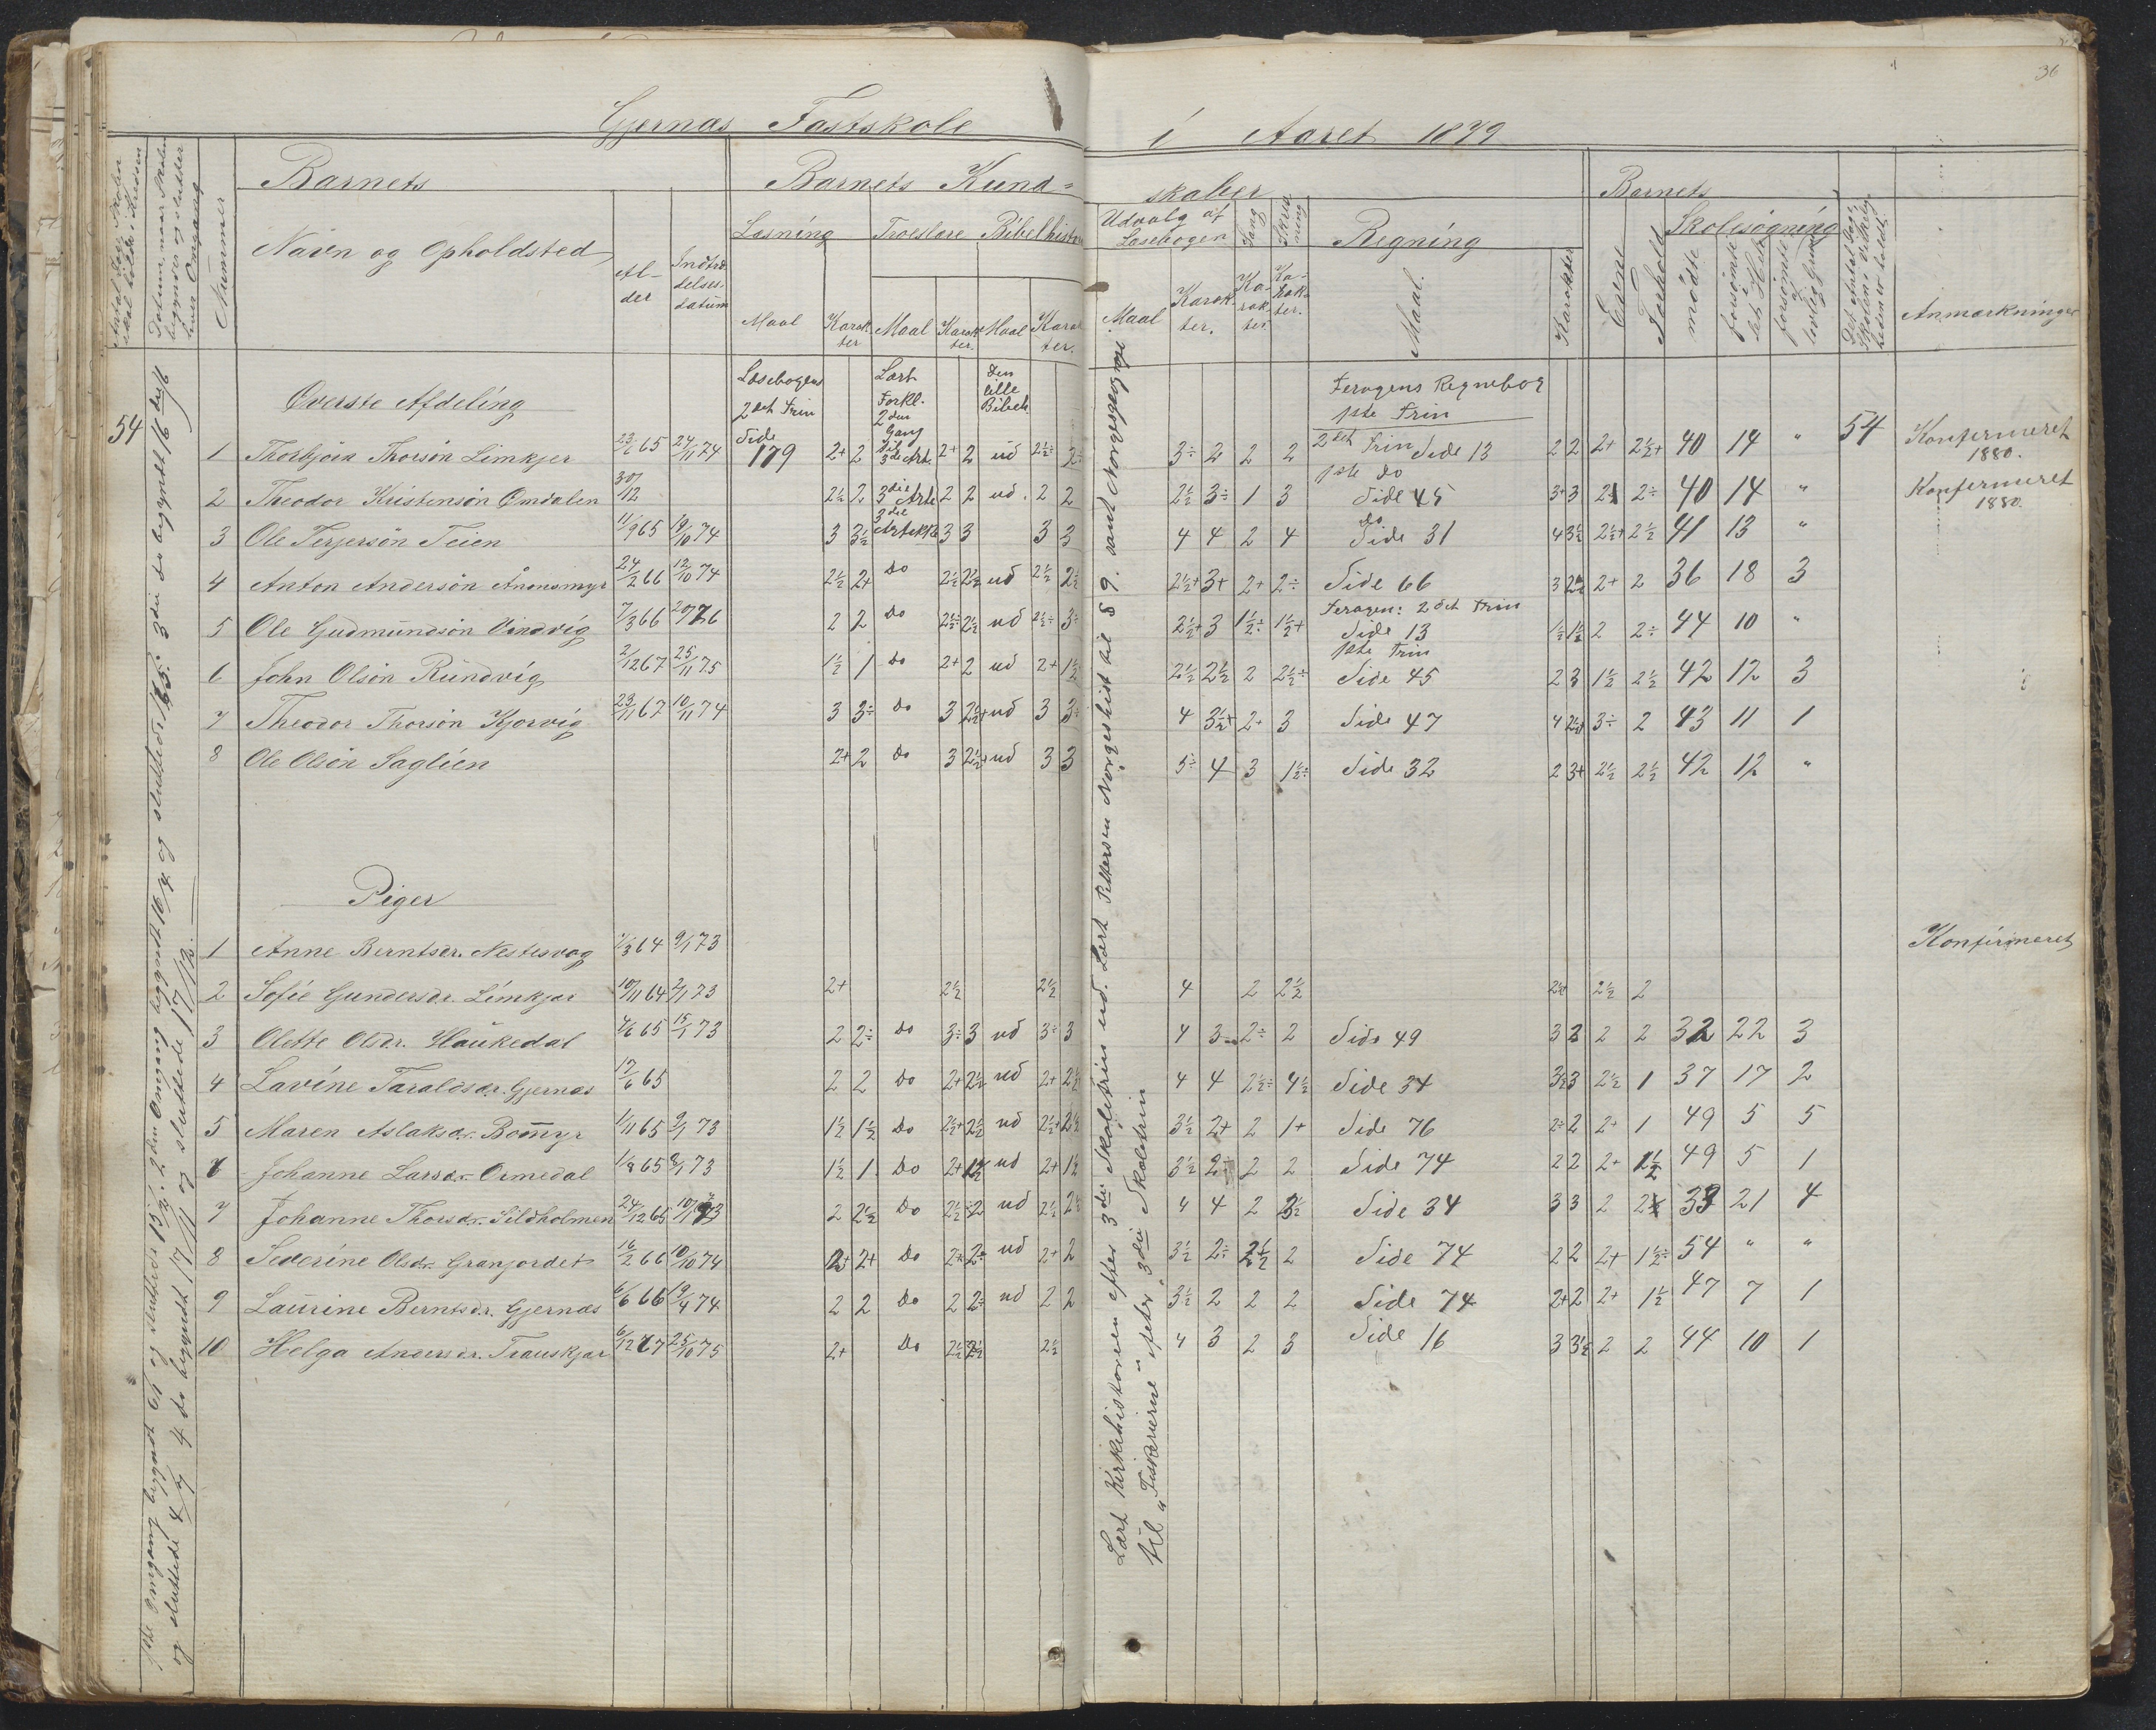 36
Gjernæs Fastskole i Aaret 1879
Antal Dage Skolen skal holdes i Kredsen
Datum, naar Skolen begynder og slutter hver Omgang
Nummer
Barnets
Navn og Opholdsted
Al-
der
Indtræ
delses-
datum
Barnets Kund=
skaber
Læsning
Troeslære
Bibelhistorie
Udvalg af
Læsebogen
Sang
Skriv
ning
Regning
Maal
Karak
ter
Maal
Karak
ter.
Maal
Karak
ter.
Maal
Karak
ter.
Ka-
rak
ter
Ka-
rak-
ter.
Maal.
Karakter
Barnets
Evne
Forhold
Skolesøgning
mødte
forsømte det Hele
forsømte af lovlig Grund
Det Antal Dage Skolen i Virkelig-
heden er holdt.
Anmærkninger
1ste Omgang begyndt 6/1 og sluttede 15/2. 2den Omgang begyndt 16/4 og sluttede 16/5. 3die do begyndt 16 de/6
og sluttede 4/7 4 do begyndt 17/11 og sluttede 17/12.
Øverste Afdeling
Læsebogens
2det Trin
Lært
Forkl.
2den
Gang
til
Den
lille
Bibelh.
Terogens Regnebog
1ste Trin
54
1 Thorbjørn Thorsøn Limkjer 23/1 65 24/11 74 Side 179 2+ 2 3de Art. 2+ 2 ud 2½÷ 2÷ 3÷ 2 2 2 2det Trin Side 13 2 2 2+ 2½+ 40 14 " 54 Konfirmeret 1880.
1ste do
2 Theodor Kristensøn Omdalen 30/12 2½ 2 3die Arte 2 2 ud. 2 2 2½ 3÷ 1 3 Side 45 3+ 3 2 2÷ 40 14 " Konfirmeret 1880.
3 Ole Terjersøn Teien 11/9 65 19/10 74 3 3½ 3del Artikkel 3 3 3 3 4 4 2 4 do Side 31 4 3½ 2½+ 2½ 41 13 "
4 Anton Andersøn Ånonsmyr 24/2 66 12/10 74 2½ 2+ Do 2½ 2½ ud 2½ 2½ 2½+ 3+ 2+ 2÷ Side 66 3 2½ 2+ 2 36 18 3
Terogens: 2det Trin
5 Ole Gudmundsøn Vindvig 7/3 66 2 2 Do 2½÷ 2½ ud 2½÷ 3÷ 2½+ 3 1½÷ 1½+ Side 13 1½ 1½ 2 2÷ 44 10 "
1ste Trin
6 John Olsøn Rundvig 2/12 67 25/11 75 1½ 1 Do 2+ 2 ud 2+ 1½ 2½ 2½ 2 2½÷ Side 45 2 3 1½ 2½ 42 12 3
7 Theodor Thorsøn Kjørvig 23/11 67 10/11 74 3 3÷ Do 3 2½+ ud 3 3÷ 4 3½+ 2+ 3 Side 47 4 2½+ 3÷ 2 43 11 1
8 Ole Olsøn Saglien 2+ 2 Do 3 2½+ ud 3 3 5÷ 4 3 1½÷ Side 32 2 3+ 2½ 2½ 42 12 "
Piger
1 Anne Berntsdr. Nestesvag 1/3 64 9/1 73 Konfirmeret
2 Sofie Gundersdr. Limkjær 10/11 64 2/1 73 2+ 2½ 2½ 4 2 2½ 2½ 2½ 2
3 Olette Olsdr. Haukedal 4/6 65 15/1 73 2 2÷ Do 3÷ 3 ud 3÷ 3 4 3 2÷ 2 Side 49 3 3 2 2 32 22 3
4 Lavine Taraldsdr. Gjernæs 17/6 65 2 2 Do 2+ 2½ ud 2+ 2½ 4 4 2½÷ 4½ Side 34 3½ 3 2½ 1 37 17 2
5 Maren Aslaksdr. Bommyr 1/11 65 9/1 73 1½ 1½ Do 2½+ 2½ ud 2½+ 2½ 3½ 2+ 2 1+ Side 76 2÷ 2 2+ 1 49 5 5
6 Johanne Larsdr. Ormedal 1/8 65 8/1 73 1½ 1 Do 2+ 1½ ud 2+ 1½ 3½ 2÷ 2 2 Side 74 2 2 2+ 1½ 49 5 1
7 Johanne Thorsdr. Sildholmen 24/12 65 10/1 73 2 2½ Do 2½ 2 ud 2½ 2½ 4 4 2 3½ Side 34 3 3 2 2 33 21 4
8 Severine Olsdr. Granjordet 16/2 66 10/10 74 2+ 2+ Do 2+ 2÷ ud 2+ 2 3½ 2÷ 2½ 2 Side 74 2 2 2+ 1½÷ 54 " "
9 Laurine Berntsdr. Gjernæs 6/6 66 19/4 74 2 2 Do 2 2÷ ud 2 2 3½ 2 2 2 Side 74 2+ 2 2+ 1½ 47 7 1
10 Helga Andersdr. Trauskjær 6/12 67 25/10 75 2+ Do 2½ 2½ 2½ 4 3 2 3 Side 16 3 3½ 2 2 44 10 1
Lært Kirkehistorien efter 3die Skoletrin ud. Lært Petersen Norgeshist til § 9. samt Norgesgeografi
til „Fiskerierne" efter „3die Skoletrin